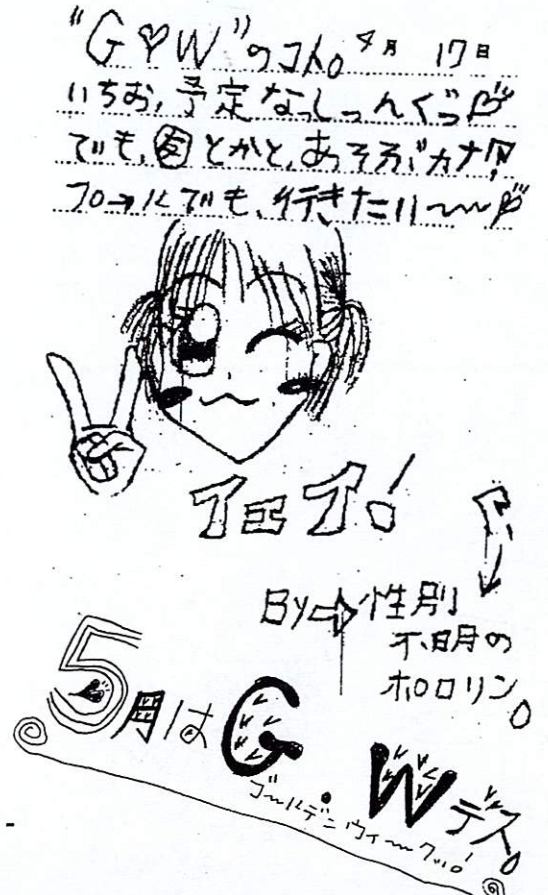 "G♡W"のコト。4月 17日
いちお、予定なっしっんぐっ♡
でも、友とかと、あそぶカナ!?
プロ→ルでも、行きたい〜〜♡
イエイ!
BY⇨性別
不明の
ホロロリン。
5月はG.Wデス。
ゴールデンウィークッ!